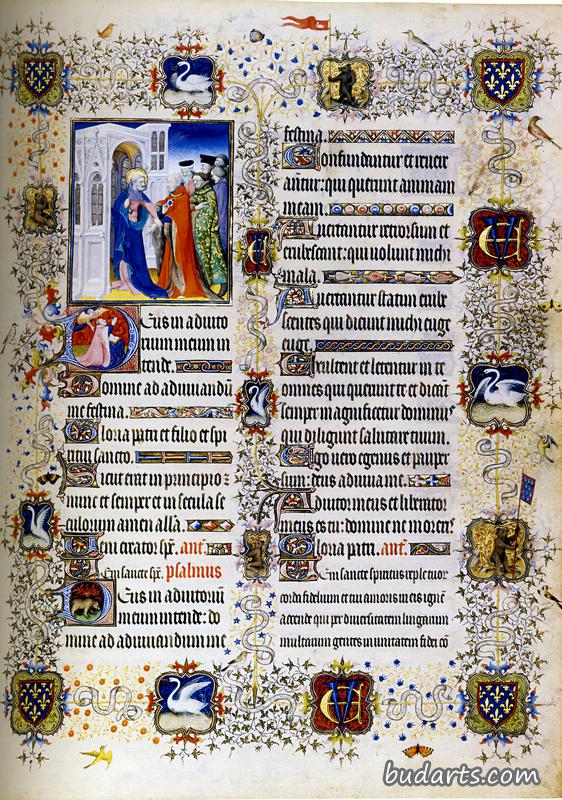 Deus in adiuto
rium meum in
tende.
Domine ad adiuuandū
me festina.
Gloria patri et filio et spi
ritui sancto.
Sicut erat in principio ⁊
nunc et semper et in secula se
culorum amen allā.
Veni creator sp̄c. ant̄.
Veni sancte sp̄c. psalmus
Deus in adiutoriū
meum intende: do
mine ad adiuuandum me
festina.
Confundantur et reuere
antur: qui querunt animam
meam.
Auertantur retrorsum et
erubescant: qui uolunt michi
mala.
Auertantur statim erube
scentes qui dicunt michi euge
euge.
Exultent et letentur in te
omnes qui querunt te et dicāt
semper magnificetur dominus
qui diligunt salutare tuum.
Ego uero egenus et pauper
sum: deus adiuua me.
Adiutor meus et liberator
meus es tu: domine ne moreris
Gloria patri. ant̄.
Veni sancte spiritus reple tuor
corda fidelium et tui amoris in eis ignē
accende qui per diuersitatem linguarum
multarum gentes in unitatem fidei cō
budarts.com